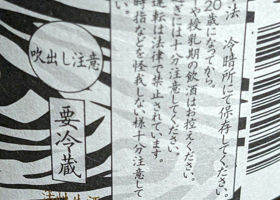 法 冷暗所にて保存してください。
20歳になってから。
や授乳期の飲酒はお控えください。
ぎには十分注意してください。
運転は法律で禁止されています。
時指などを怪我しない様十分注意して
吹出し注意
要冷蔵